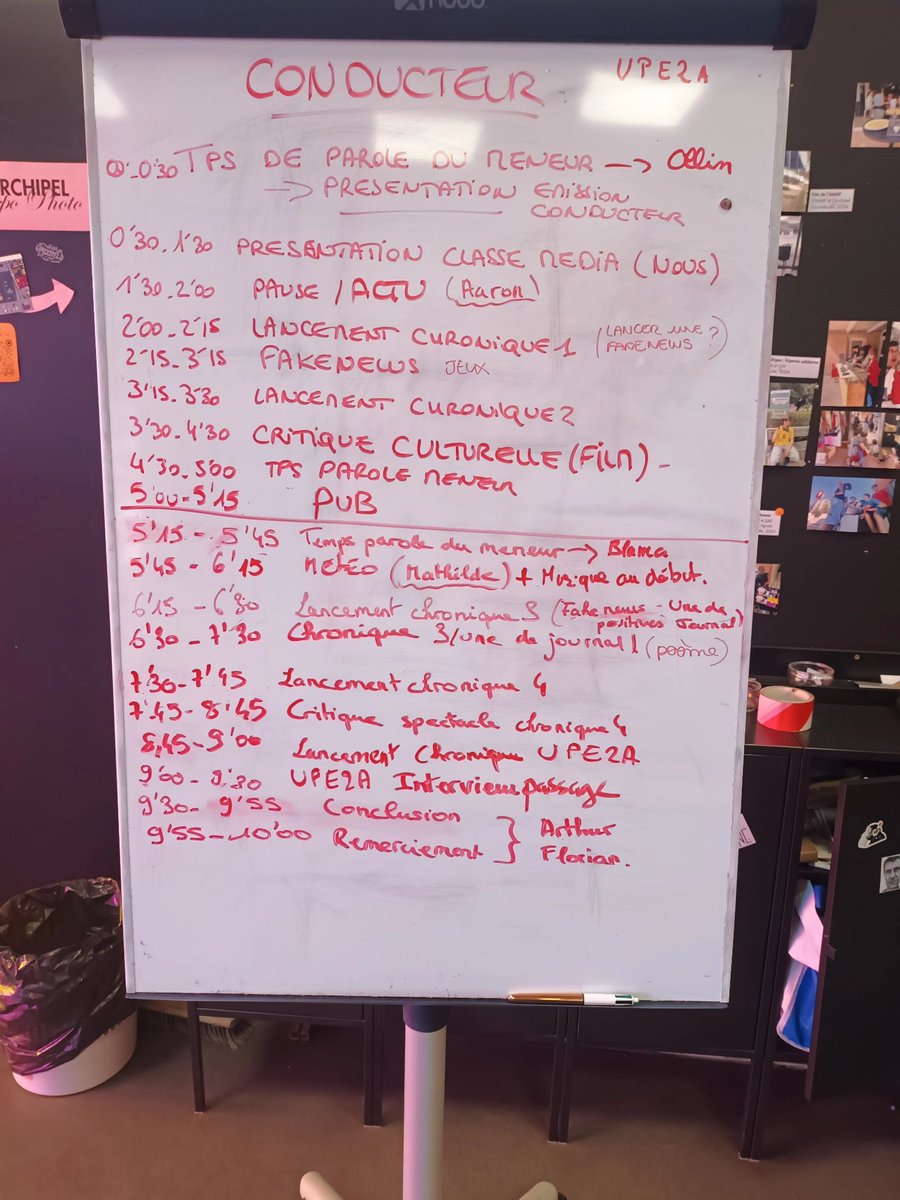 CONDUCTEUR
UPE2A
0'-0'30 TPS DE PAROLE DU MENEUR → Ollin
→ PRESENTATION EMISSION
CONDUCTEUR
0'30.1'30 PRESENTATION CLASSE MEDIA (NOUS)
1'30.2'00 PAUSE / ACTU (Aaron)
2'00-2'15 LANCEMENT CHRONIQUE 1 (LANCER UNE FAKENEWS ?)
2'15.3'15 FAKENEWS JEUX
3'15.3'30 LANCEMENT CHRONIQUE 2
3'30.4'30 CRITIQUE CULTURELLE (FILM) -
4'30.5'00 TPS PAROLE MENEUR
5'00-5'15 PUB
5'15-5'45 Temps parole du meneur → Blanca
5'45-6'15 METEO (Mathilde) + Musique au début.
6'15-6'30 Lancement chronique 3 (Fake news - Une de positives Journal)
6'30-7'30 Chronique 3/une de journal 1 (poème)
7'30-7'45 Lancement chronique 4
7'45-8'45 Critique spectacle chronique 4
8,45-9'00 Lancement Chronique UPE2A
9'00-9'30 UPE2A Interview passage
9'30-9'55 Conclusion
9'55-10'00 Remerciement } Arthur
Florian.
RCHIPEL
po Photo